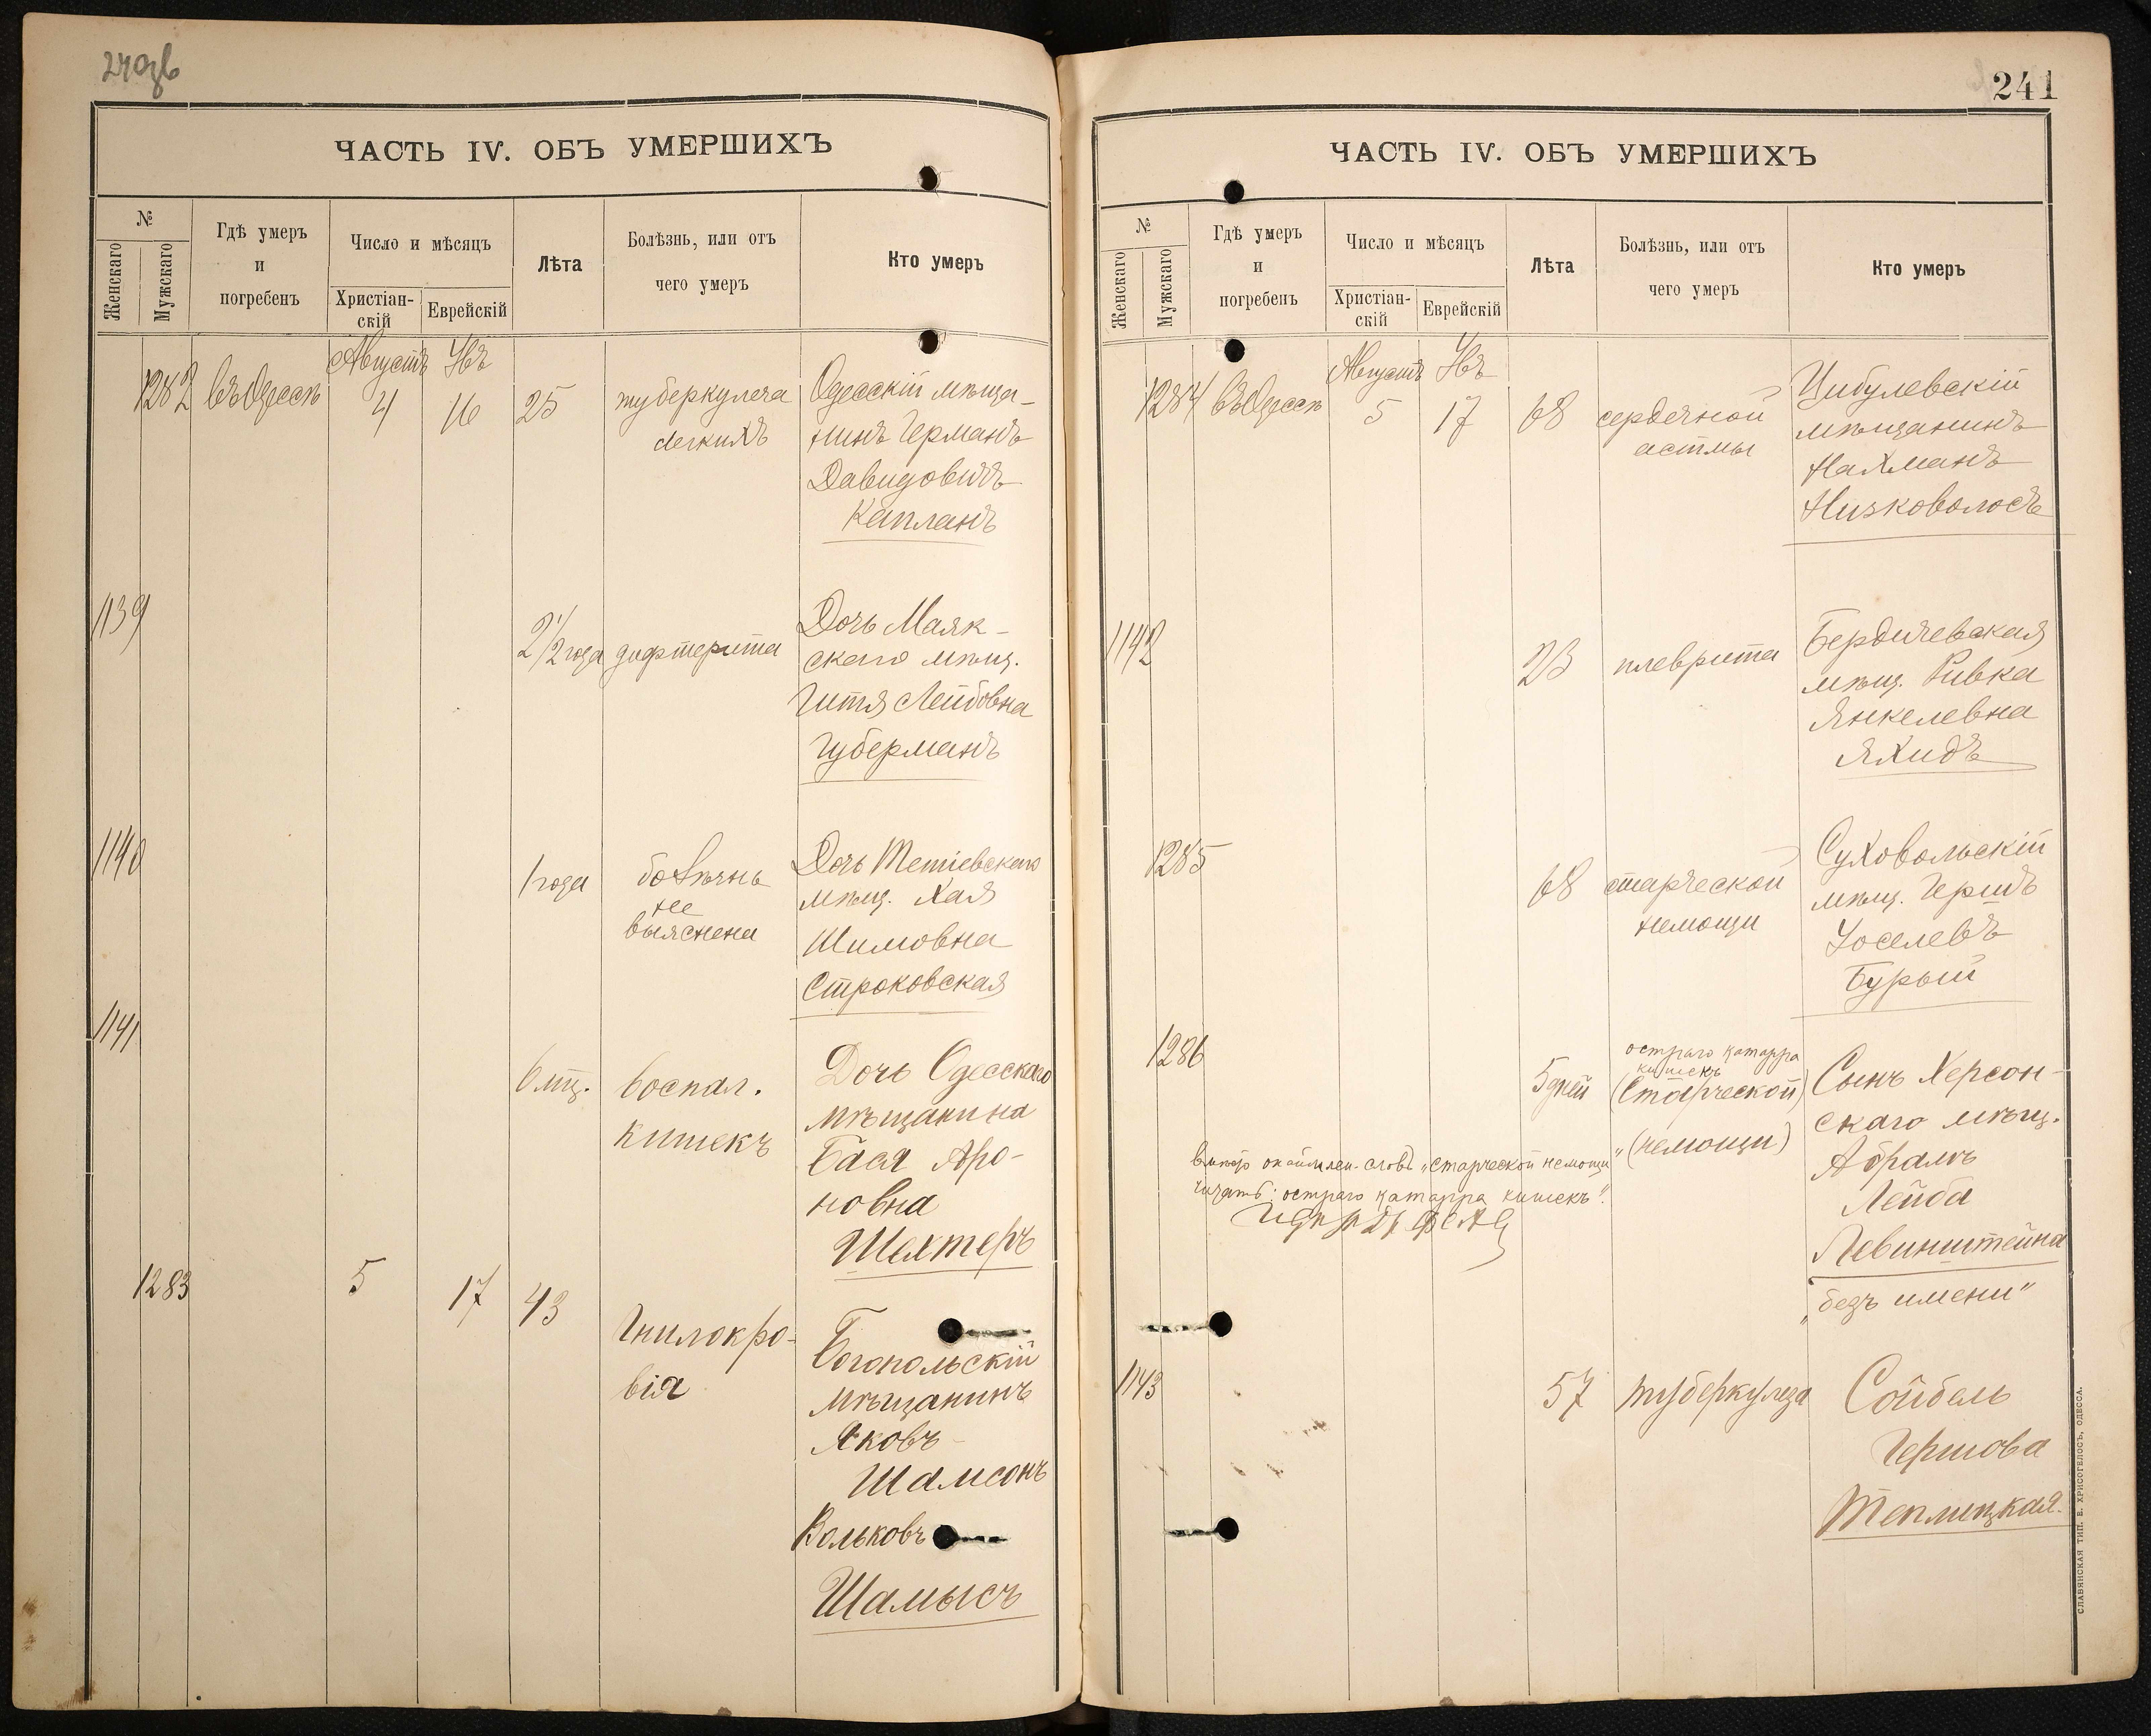 240об
ЧАСТЬ IV. ОБЪ УМЕРШИХЪ
№
Женскаго
Мужскаго
Гдѣ умеръ
и
погребенъ
Число и мѣсяцъ
Христіан-
скій
Еврейскій
Лѣта
Болѣзнь, или отъ
чего умеръ
Кто умеръ
Августъ Увъ
1282 въ Одессѣ 4 16 25 туберкулеза Одесскій мѣща-
легкихъ нинъ Германъ
Давидовичъ
Капланъ
1139 2 1/2 года дифтерита Дочь Маяк-
скаго мѣщ.
Гитя Лейбовна
Губерманъ
1140 1 года болѣзнь Дочь Тетіевскаго
не мѣщ. Хая
выяснена Шимовна
Строковская
1141
6 мц. воспал. Дочь Одесскаго
кишекъ мѣщанина
Бася Аро-
новна
Шехтеръ
1283 5 17 43 Гнилокро-
вія Богопольскій
мѣщанинъ
Яковъ-
Шамсонъ
Вольковъ
Шамысъ
241
ЧАСТЬ IV. ОБЪ УМЕРШИХЪ
№
Женскаго
Мужскаго
Гдѣ умеръ
и
погребенъ
Число и мѣсяцъ
Христіан-
скій
Еврейскій
Лѣта
Болѣзнь, или отъ
чего умеръ
Кто умеръ
Августъ Увъ
1284 въ Одессѣ 5 17 68 сердечной Цибулевскій
астмы мѣщанинъ
Нахманъ
Низковолосъ
1142 23 плеврита Бердичевская
мѣщ. Ривка
Янкелевна
Яхидъ
1285 68 старческой Суховольскій
немощи мѣщ. Гершъ
Іоселевъ
Бурый
1286 остраго катарра
кишекъ
5 дней (Старческой) Сынъ Херсон-
"(немощи) скаго мѣщ.
Абрамъ
Лейба
Левинштейна
„безъ имени"
словъ „старческой немощи"
читать: остраго катарра кишекъ".
1143 57 туберкулеза Сойбель
Гершова
Теплицкая.
СЛАВЯНСКАЯ ТИП. Е. ХРИСОГЕЛОСЪ, ОДЕССА.